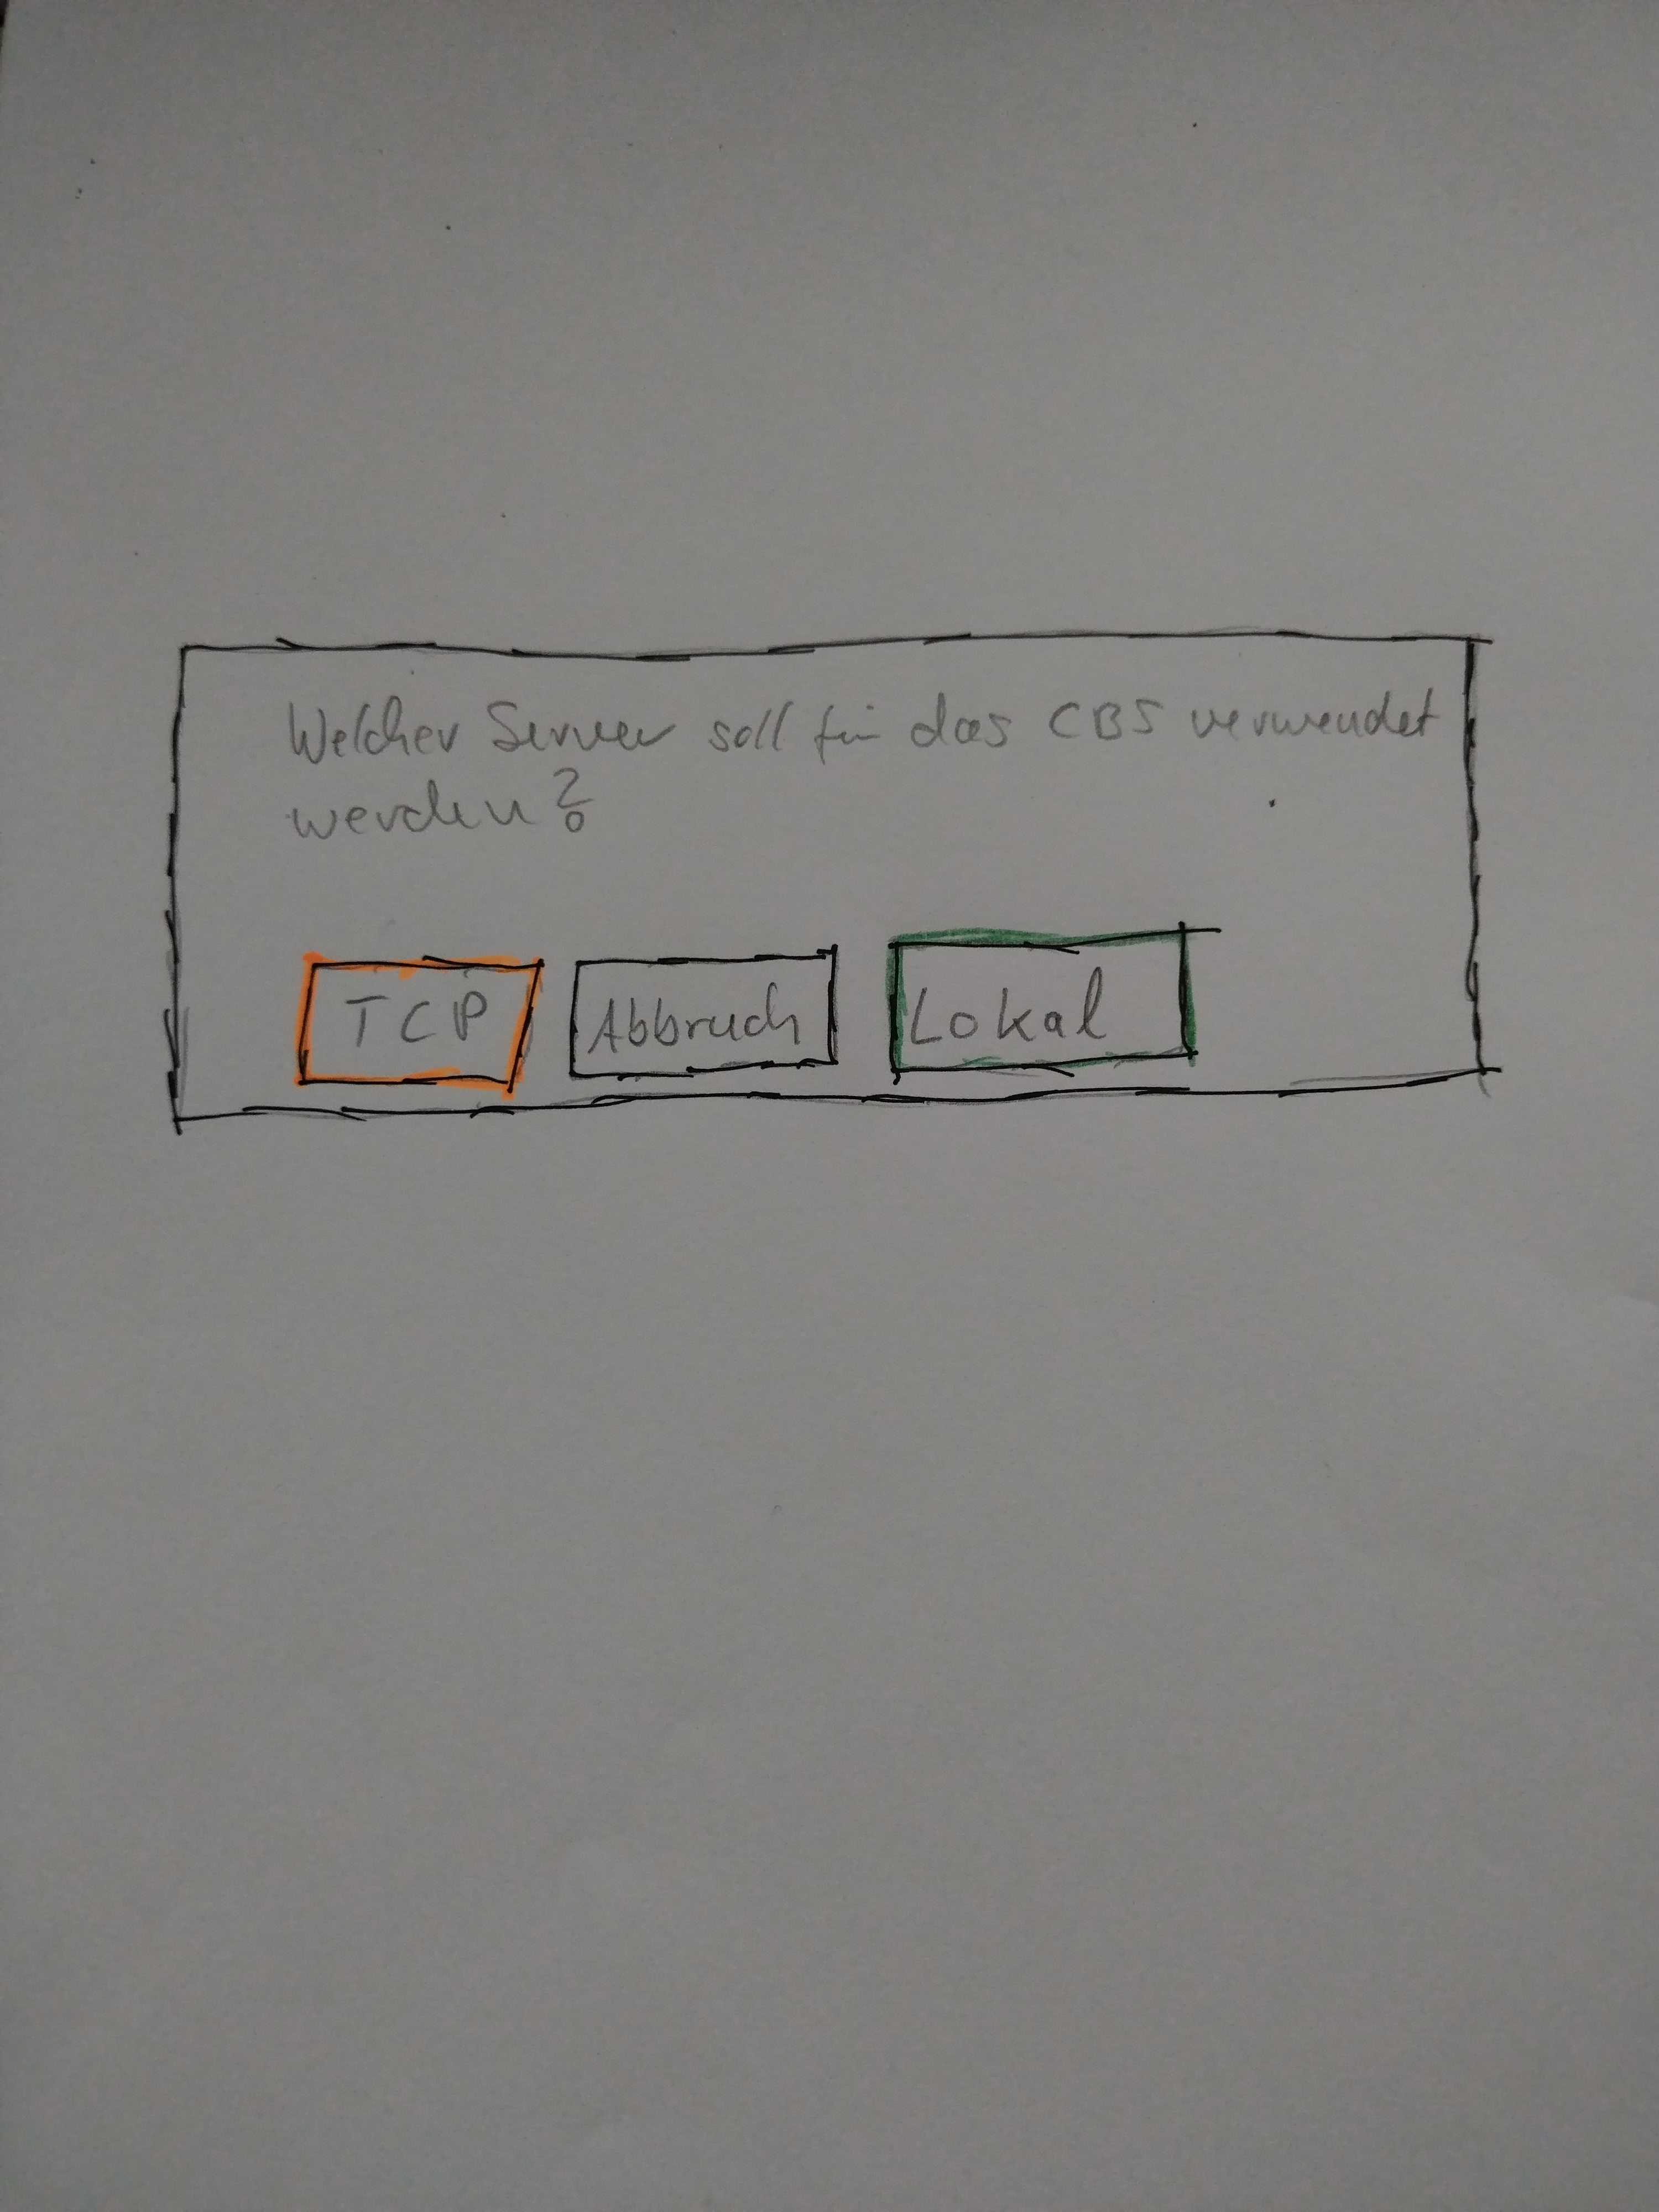 Welcher Server soll für das CBS verwendet
werden?
TCP Abbruch Lokal